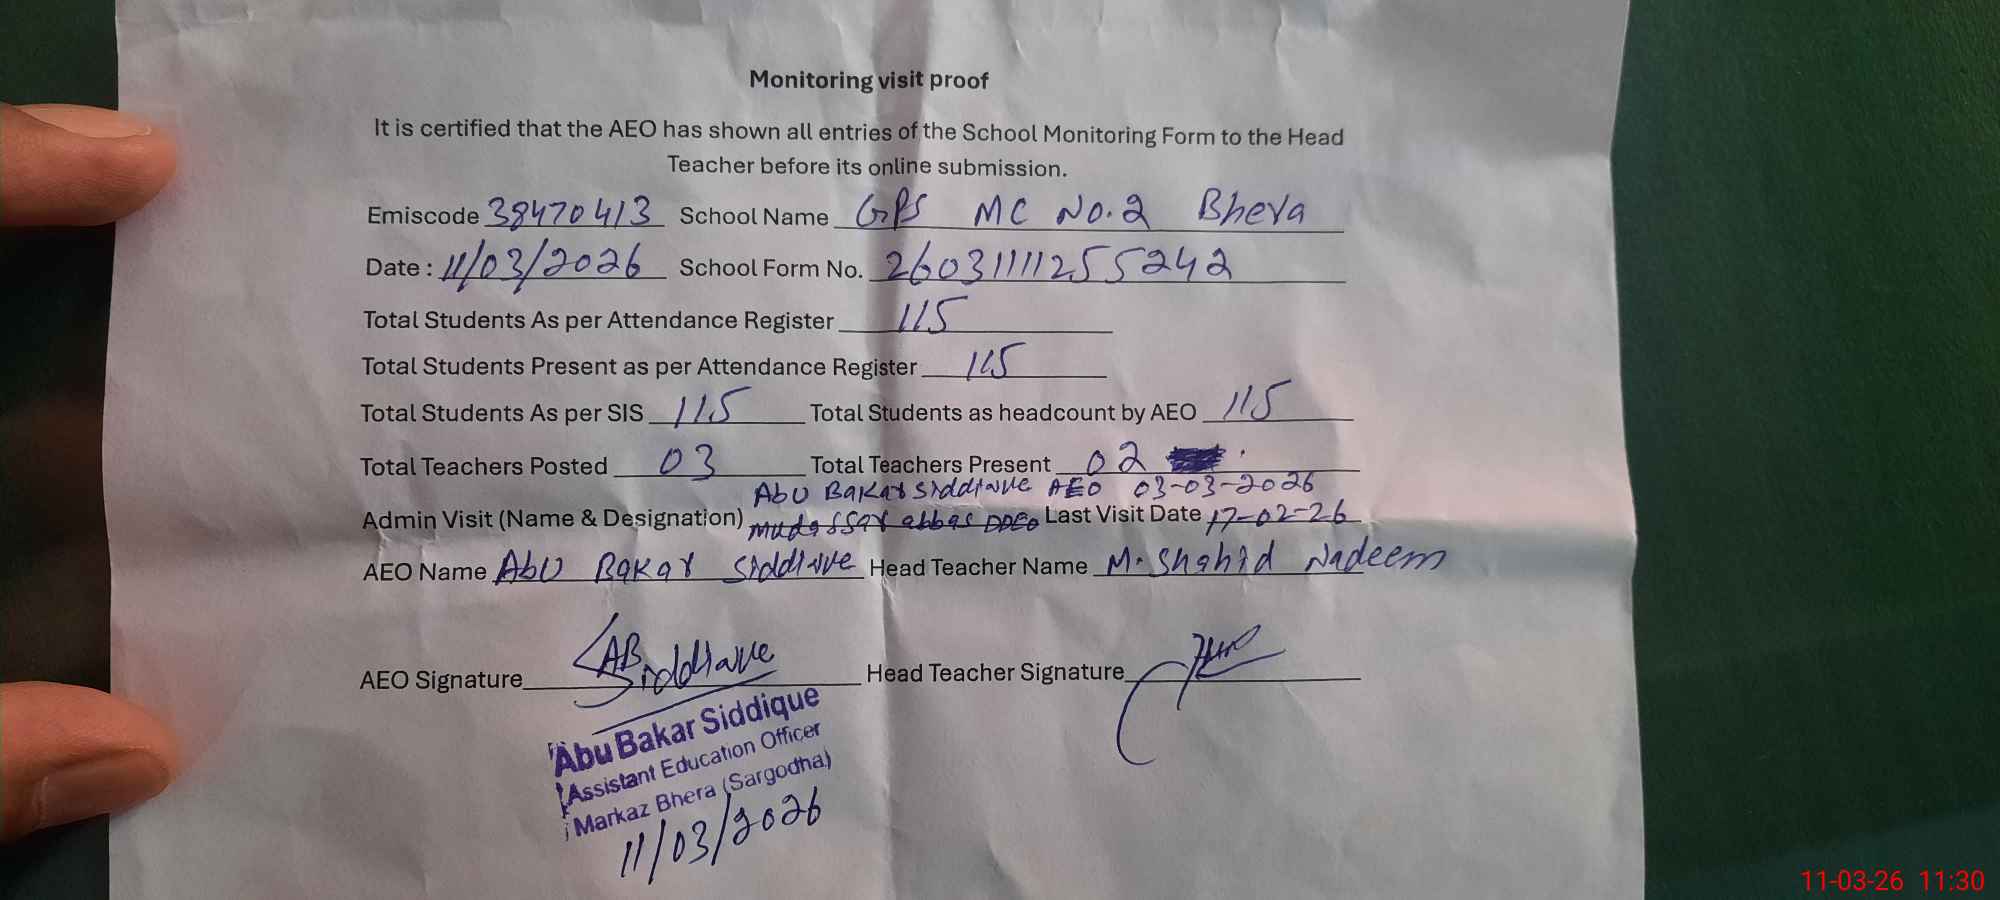 Monitoring visit proof
It is certified that the AEO has shown all entries of the School Monitoring Form to the Head
Teacher before its online submission.
Emiscode 38470413 School Name GPS MC No.2 Bhera
Date : 11/03/2026 School Form No. 26031111255242
Total Students As per Attendance Register 115
Total Students Present as per Attendance Register 115
Total Students As per SIS 115 Total Students as headcount by AEO 115
Total Teachers Posted 03 Total Teachers Present 02
Abu Bakar Siddique AEO 03-03-2026
Admin Visit (Name & Designation) mudassar abbas DDEO Last Visit Date 17-02-26
AEO Name Abu Bakar Siddique Head Teacher Name M. Shahid Nadeem
AEO Signature AB Siddique Head Teacher Signature
Abu Bakar Siddique
Assistant Education Officer
Markaz Bhera (Sargodha)
11/03/2026
11-03-26 11:30